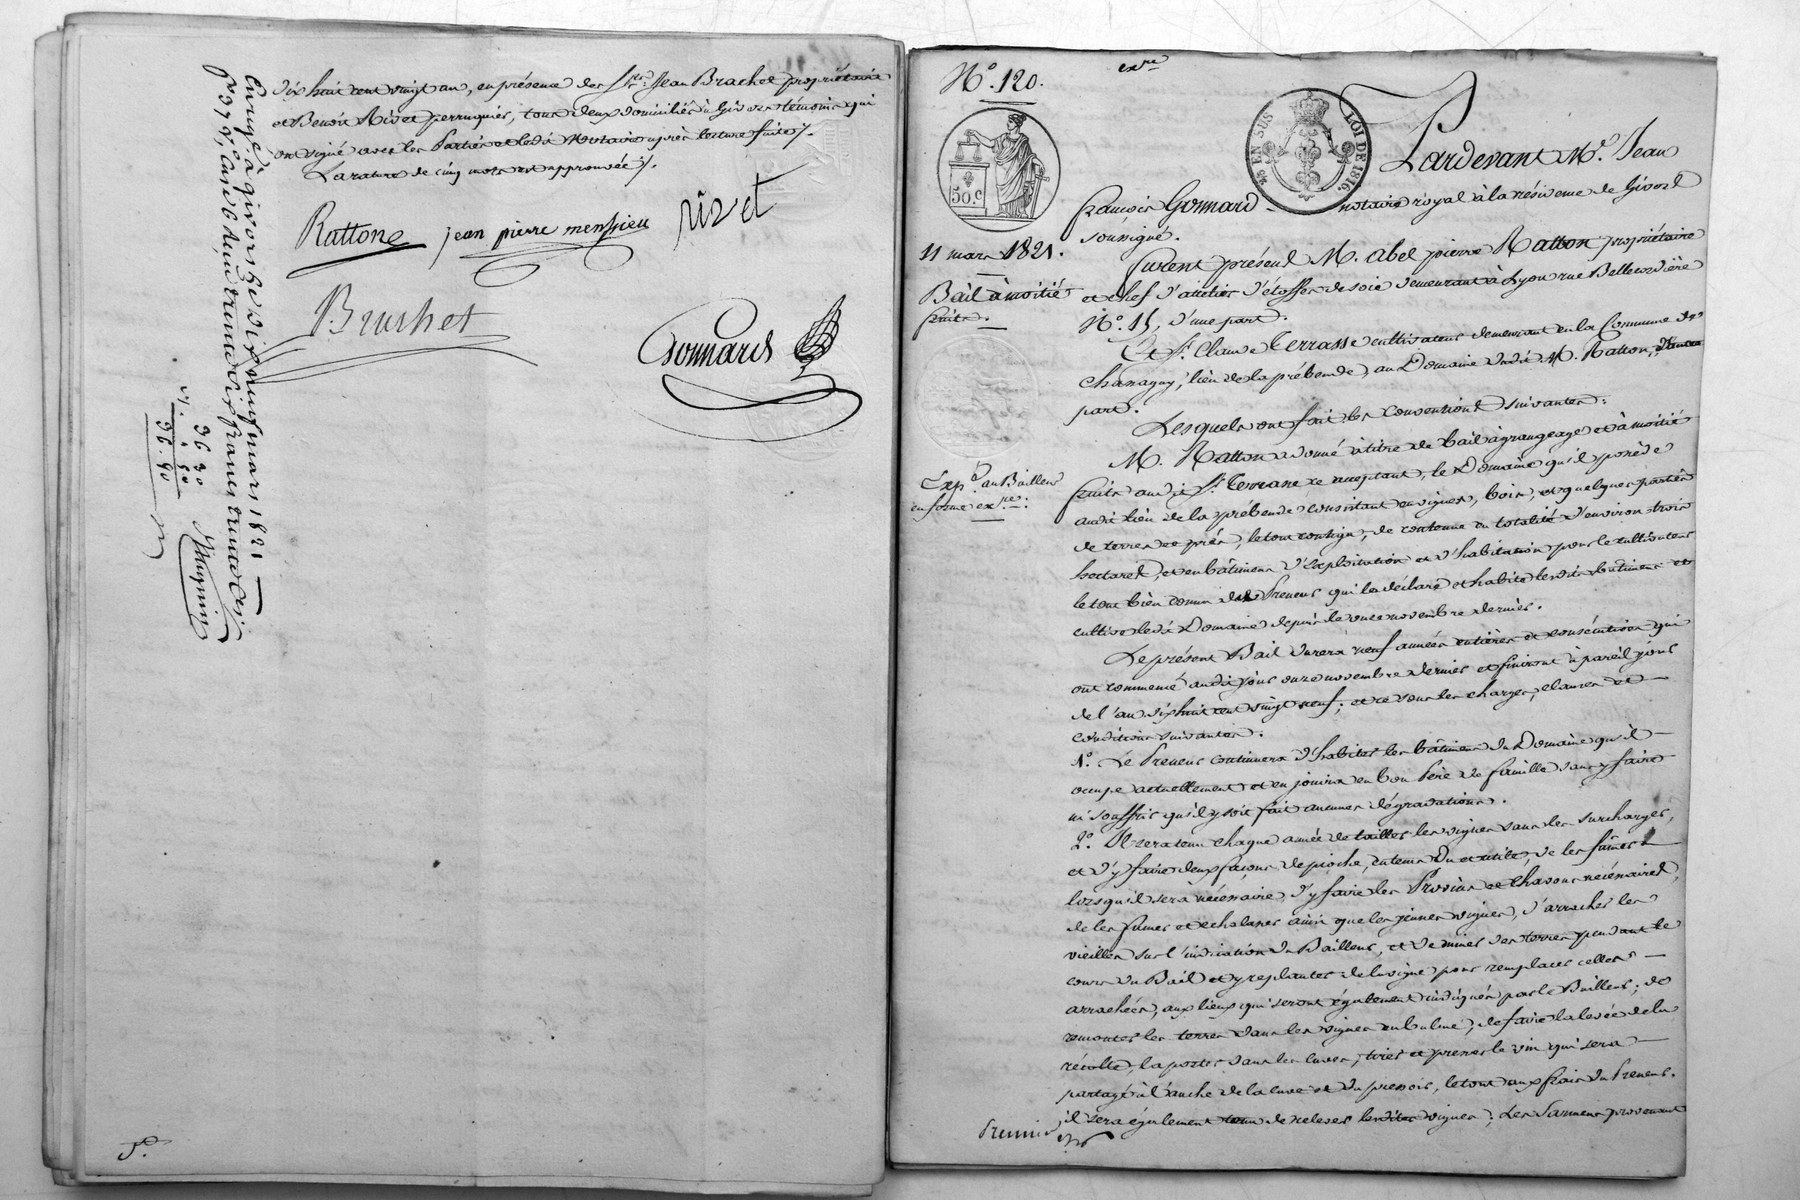 dix huit cent vingt un, en présence des Srs. Jean Brachet propriétaire
et Benoit Rivet perruquier, tous deux domiciliés à Givors témoins qui
ont signé avec les Parties et ledit Notaire après lecture faite /.
La rature de cinq mots est approuvée /.
Rattone jean pierre menssieu rivet
Bruchet
Gonnard
Enregé. à givors le dix neuf mars 1821
trente six francs
36 30
36. 80
5e.
exre
No. 120.
50. c
25 EN SUS LOI DE 1816.
Pardevant Me. Jean
françois Gonnard notaire royal à la résidence de Givors
soussigné.
11 mars 1821.
Bail à moitié
fruits.
Expd. au Bailleur
en forme exre.
Furent présens M. Abel pierre Ratton propriétaire
et chef d'atelier d'étoffes de soie demeurant à Lyon rue Bellecordière
No. 15, d'une part.
Et Sr. Claude Terrasse cultivateur demeurant en la Commune de
Chanagny, lieu de la prébende, au Domaine dudit M. Ratton, d'autre
part.
Lesquels ont fait les conventions suivantes :
M. Ratton a donné à titre de bail à grangeage et à moitié
fruits audit Sr. Terrasse ce acceptant, le Domaine qu'il possède
audit lieu de la prébende consistant en vignes, bois, et quelques parties
de terres et prés, le tout contigu, de contenue en totalité d'environ trois
hectares, et en bâtimens d'exploitation et d'habitation pour le cultivateur
le tout bien connu du Preneur qui l'a déclaré et habite lesdits bâtimens et
cultive ledit Domaine depuis le onze novembre dernier.
Le présent Bail durera neuf années entières et consécutives qui
ont commencé audit jour onze novembre dernier et finiront à pareil jour
de l'an dix huit cent vingt neuf ; et ce sous les charges, clauses et
conditions suivantes.
1o. Le Preneur continuera d'habiter les bâtimens du Domaine qu'il
occupe actuellement et en jouira en bon Père de famille sans y faire
ni souffrir qu'il y soit fait aucunes dégradations.
2o. Il sera tenu chaque année de tailler les vignes sans les surcharger,
et d'y faire deux façons de pioche, en tems du et utile, de les fumer
lorsqu'il sera nécessaire, d'y faire les Provins et Chavons nécessaires,
de les fumer et échalasser ainsi que les jeunes vignes, d'arracher les
vieilles sur l'indication du Bailleur, et de miner des terres pendant le
cours du Bail et y replanter de la vigne pour remplacer celles
arrachées, aux lieux qui seront également indiqués par le Bailleur ; de
remonter les terres dans les vignes de faire la levée de la
récolte, la porter dans les cuves, tirer et presser le vin qui sera
partagé à l'anche de la cuve et du pressoir, le tout aux frais du Preneur.
il sera également tenu de relever lesdites vignes ; Les Sarmens provenant
Premier